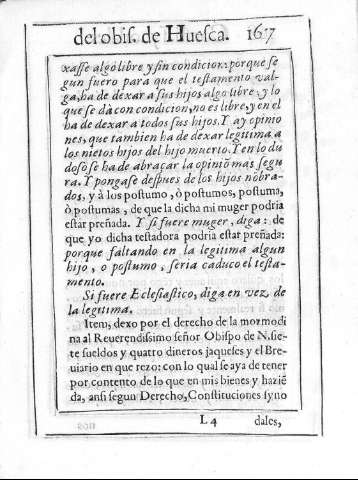 del obis. de Huesca. 167
xasse algo libre y sin condicion: porque se
gun fuero para que el testamento val-
ga, ha de dexar a sus hijos algo libre: y lo
que se dà con condicion, no es libre, y en el
ha de dexar a todos sus hijos. Y ay opinio
nes, que tambien ha de dexar legitima a
los nietos hijos del hijo muerto. Y en lo du
doso se ha de abracar la opiniõ mas segu
ra. Y pongase despues de los hijos nõbra-
dos, y à los postumo, ò postumos, postuma,
ò postumas, de que la dicha mi muger podria
estar preñada. Y si fuere muger, diga: de
que yo dicha testadora podria estar preñada:
porque faltando en la legitima algun
hijo, o postumo, seria caduco el testa-
mento.
Si fuere Eclesiastico, diga en vez de
la legitima.
Item, dexo por el derecho de la mozmodi
na al Reuerendissimo señor Obispo de N. sie-
te sueldos y quatro dineros jaqueses y el Bre-
uiario en que rezo: con lo qual se aya de tener
por contento de lo que en mis bienes y haziē
da, ansi segun Derecho, Constituciones syno
L 4 dales,